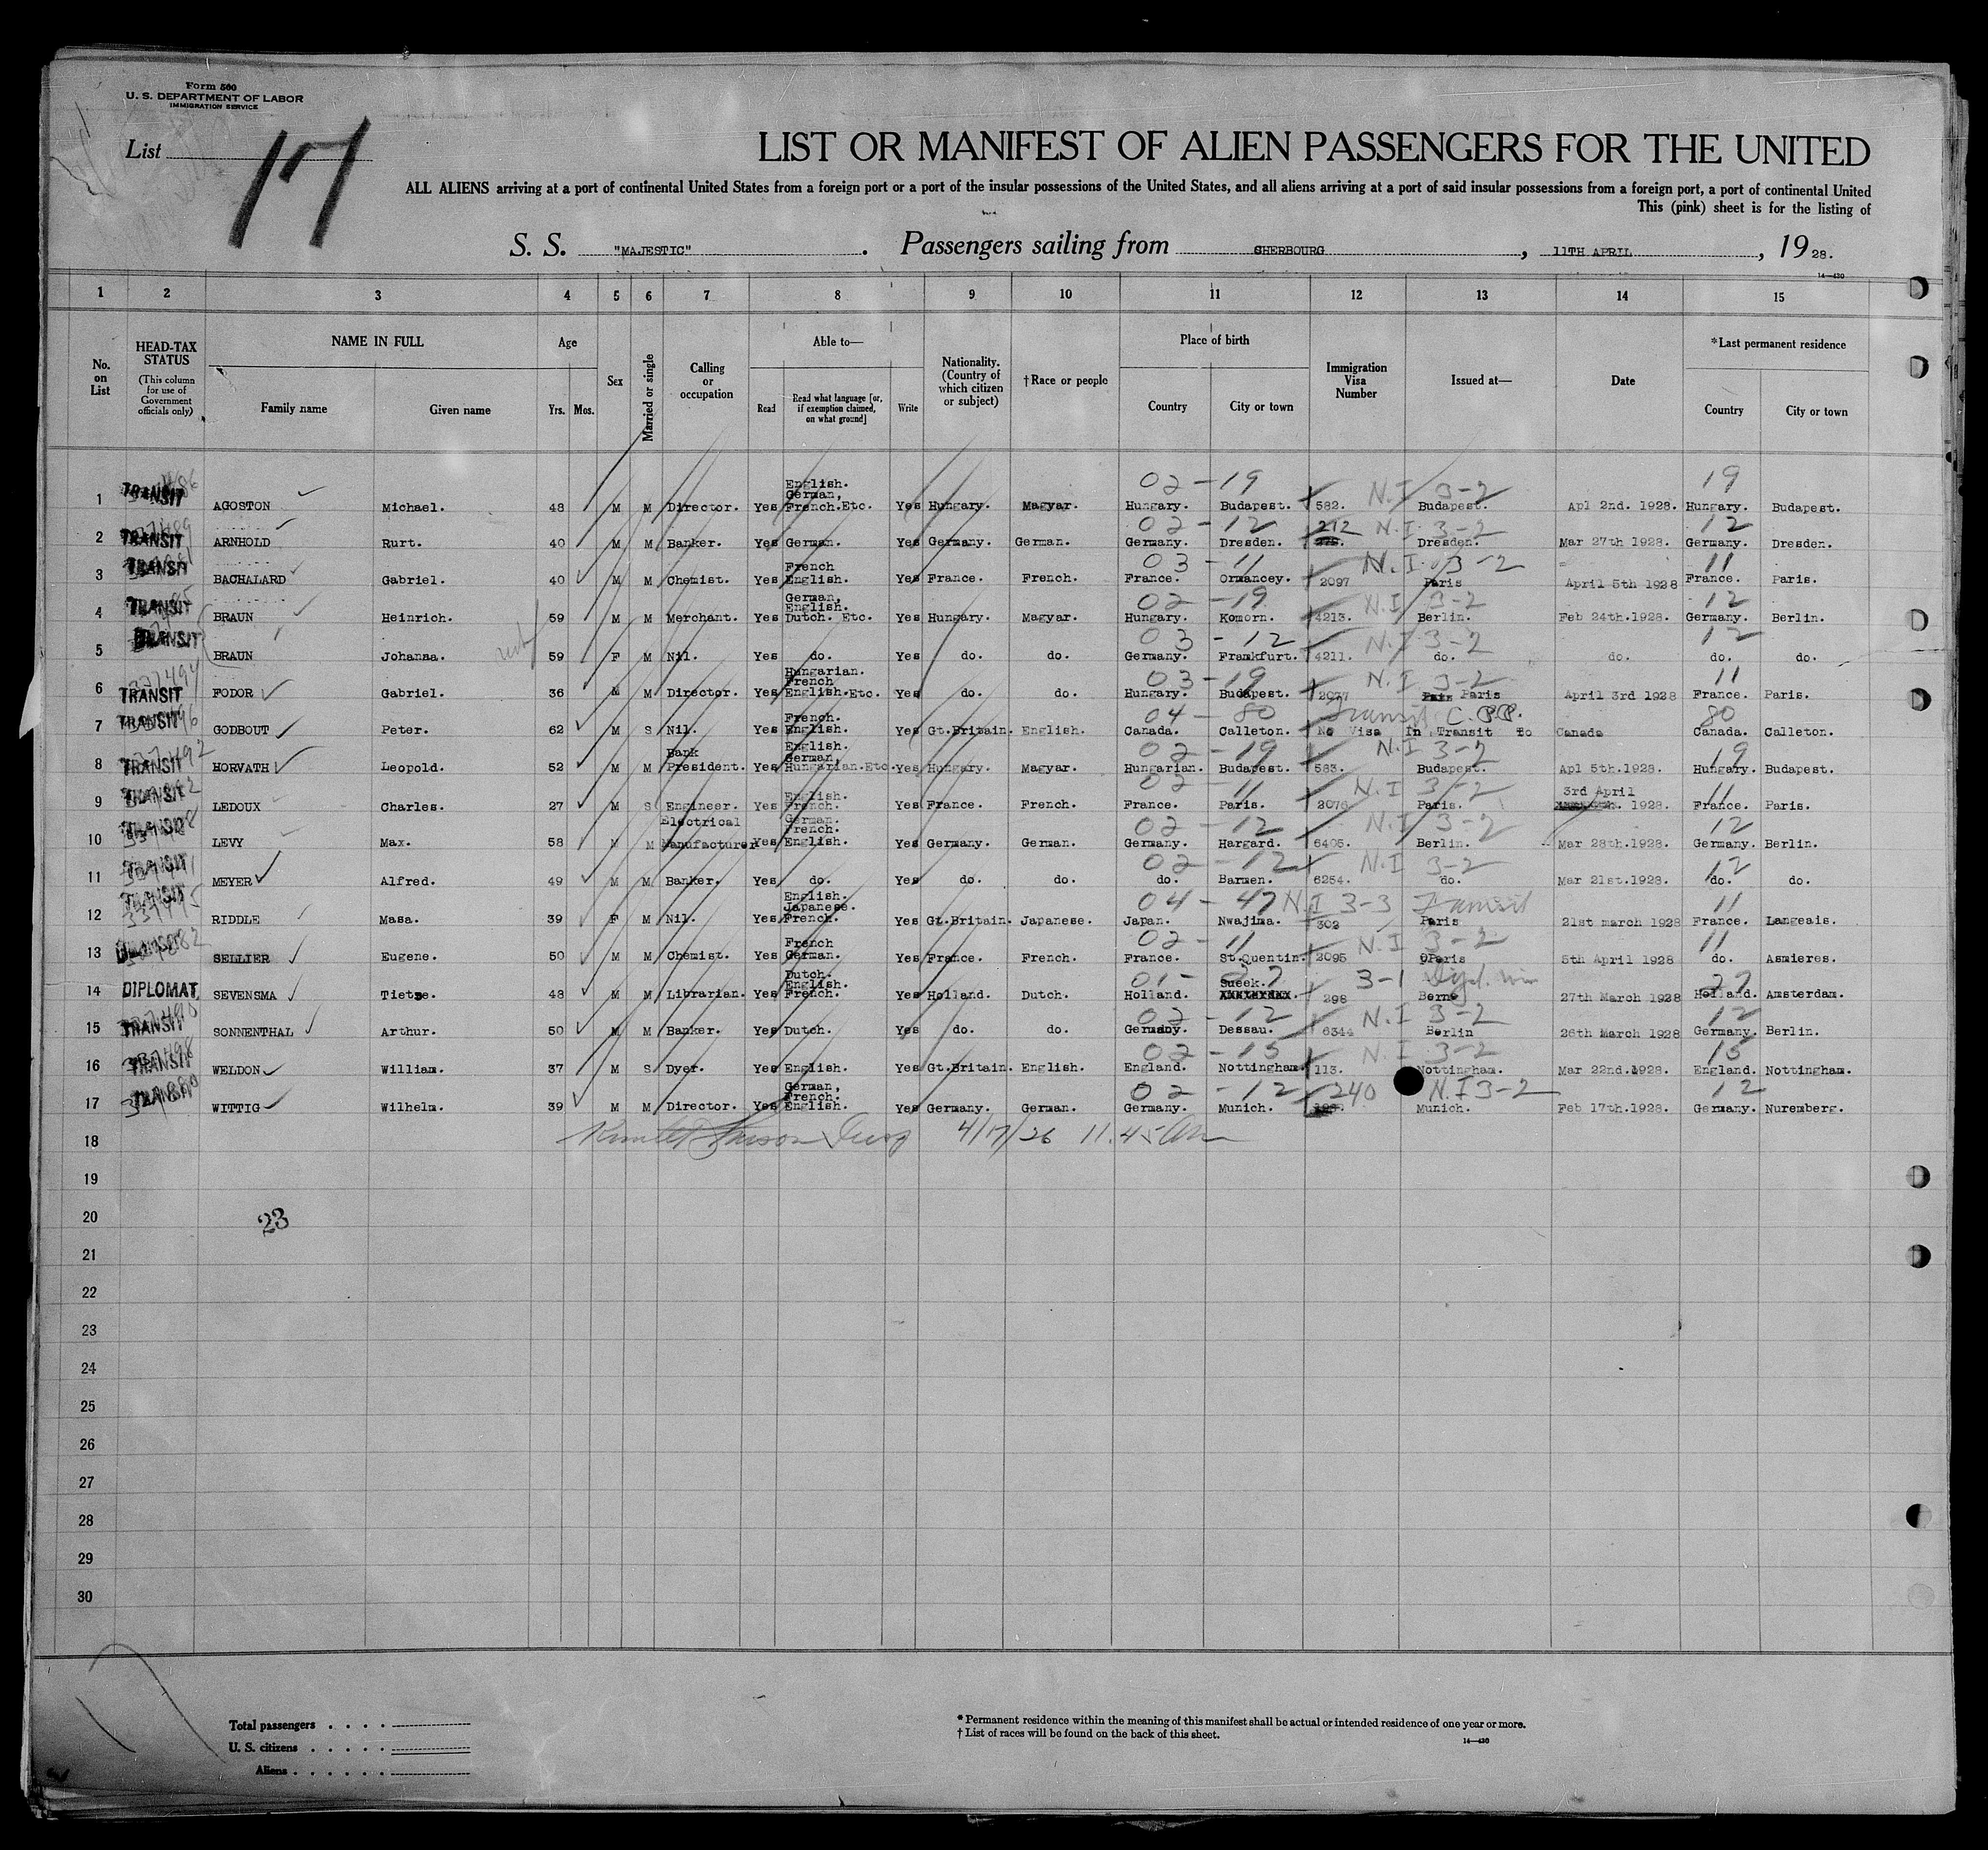 Form 500
U. S. DEPARTMENT OF LABOR
IMMIGRATION SERVICE
List 17
LIST OR MANIFEST OF ALIEN PASSENGERS FOR THE UNITED
ALL ALIENS arriving at a port of continental United States from a foreign port or a port of the insular possessions of the United States, and all aliens arriving at a port of said insular possessions from a foreign port, a port of continental United
This (pink) sheet is for the listing of
S. S. "MAJESTIC" . Passengers sailing from CHERBOURG , 11TH APRIL , 19 28.
14—430
1 2 3 4 5 6 7 8 9 10 11 12 13 14 15
No. on List
HEAD-TAX STATUS (This column for use of Government officials only)
NAME IN FULL Family name Given name
Age Yrs. Mos.
Sex
Married or single
Calling or occupation
Able to— Read Read what language [or, if exemption claimed, on what ground] Write
Nationality. (Country of which citizen or subject)
†Race or people
Place of birth Country City or town
Immigration Visa Number
Issued at—
Date
*Last permanent residence Country City or town
02-19 N.I 3-2 19
1 TRANSIT AGOSTON Michael. 48 M M Director. Yes English. German, French. Etc. Yes Hungary. Magyar. Hungary. Budapest. 582. Budapest. Apl 2nd. 1928. Hungary. Budapest.
02-12 212 N.I. 3-2 12
2 TRANSIT ARNHOLD Rurt. 40 M M Banker. Yes German. Yes Germany. German. Germany. Dresden. Dresden. Mar 27th 1928. Germany. Dresden.
03-11 N.I. 3-2 11
3 TRANSIT BACHALARD Gabriel. 40 M M Chemist. Yes French English. Yes France. French. France. Ormancey. 2097 Paris April 5th 1928 France. Paris.
02-19 N.I 3-2 12
4 TRANSIT BRAUN Heinrich. 59 M M Merchant. Yes German, English. Dutch. Etc. Yes Hungary. Magyar. Hungary. Komorn. 4213. Berlin. Feb 24th.1928. Germany. Berlin.
03-12 N.I 3-2 12
5 TRANSIT BRAUN Johanna. 59 F M Nil. Yes do. Yes do. do. Germany. Frankfurt. 4211. do. do. do. do.
03-19 N.I 3-2 11
6 TRANSIT FODOR Gabriel. 36 M M Director. Yes Hungarian. French English. Etc. Yes do. do. Hungary. Budapest. 2037 Paris April 3rd 1928 France. Paris.
04-80 Transit C.P.P. 80
7 TRANSIT GODBOUT Peter. 62 M S Nil. Yes French. English. Yes Gt.Britain. English. Canada. Calleton. No Visa In Transit to Canada Canada. Calleton.
02-19 N.I 3-2 19
8 TRANSIT HORVATH Leopold. 52 M M Bank President. Yes English. German, Hungarian.Etc. Yes Hungary. Magyar. Hungarian. Budapest. 583. Budapest. Apl 5th.1928. Hungary. Budapest.
02-11 N.I 3-2 11
9 TRANSIT LEDOUX Charles. 27 M S Engineer. Yes English. French. Yes France. French. France. Paris. 2076 Paris. 3rd April 1928. France. Paris.
02-12 N.I 3-2 12
10 TRANSIT LEVY Max. 58 M M Electrical Manufacturer Yes German. French. English. Yes Germany. German. Germany. Hargard. 6405. Berlin. Mar 28th.1928. Germany. Berlin.
02-12 N.I 3-2 12
11 TRANSIT MEYER Alfred. 49 M M Banker. Yes do. Yes do. do. do. Barmen. 6254. do. Mar 21st.1928. do. do.
04-47 N.I 3-3 Transit 11
12 TRANSIT RIDDLE Masa. 39 F M Nil. Yes English. Japanese. French. Yes Gt.Britain. Japanese. Japan. Nwajima. 302 Paris 21st march 1928 France. Langeais.
02-11 N.I 3-2 11
13 SELLIER Eugene. 50 M M Chemist. Yes French German. Yes France. French. France. St.Quentin. 2095 Paris 5th April 1928 do. Asnieres.
01-27 3-1 27
14 DIPLOMAT. SEVENSMA Tietse. 48 M M Librarian. Yes Dutch. English. French. Yes Holland. Dutch. Holland. Sneek. XXXXXXXXX. 298 Berne 27th March 1928 Holland. Amsterdam.
02-12 N.I 3-2 12
15 TRANSIT SONNENTHAL Arthur. 50 M M Banker. Yes Dutch. Yes do. do. Germany. Dessau. 6344 Berlin 26th March 1928 Germany. Berlin.
02-15 N.I 3-2 15
16 TRANSIT WELDON William. 37 M S Dyer. Yes English. Yes Gt.Britain. English. England. Nottingham. 113. Nottingham. Mar 22nd.1928. England. Nottingham.
02-12 240 N.I 3-2 12
17 TRANSIT WITTIG Wilhelm. 39 M M Director. Yes German, French. English. Yes Germany. German. Germany. Munich. Munich. Feb 17th.1928. Germany. Nuremberg.
18 4/17/26 11.45 AM
19
20 23
21
22
23
24
25
26
27
28
29
30
Total passengers . . . .
U. S. citizens . . . . .
Aliens . . . . . .
* Permanent residence within the meaning of this manifest shall be actual or intended residence of one year or more.
† List of races will be found on the back of this sheet.
14—430